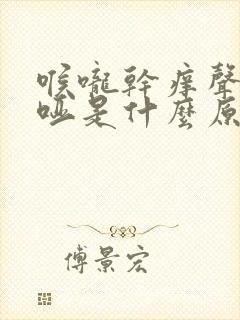 喉嚨幹癢聲
啞是什麼原
傅景宏